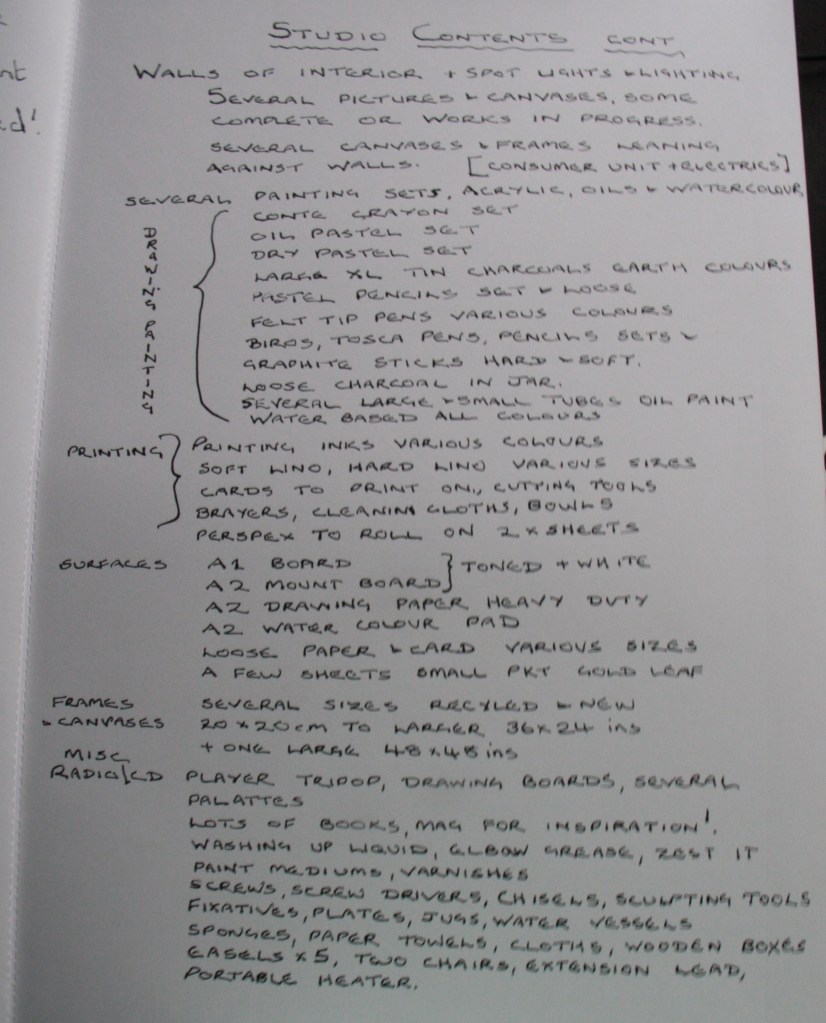 nt
ed!
STUDIO CONTENTS CONT
WALLS OF INTERIOR + SPOT LIGHTS & LIGHTING
SEVERAL PICTURES & CANVASES, SOME
COMPLETE OR WORKS IN PROGRESS.
SEVERAL CANVASES & FRAMES LEANING
AGAINST WALLS. [CONSUMER UNIT + ELECTRICS]
SEVERAL PAINTING SETS, ACRYLIC, OILS & WATERCOLOUR
DRAWING PAINTING
CONTE CRAYON SET
OIL PASTEL SET
DRY PASTEL SET
LARGE XL TIN CHARCOALS EARTH COLOURS
PASTEL PENCILS SET & LOOSE
FELT TIP PENS VARIOUS COLOURS
BIROS, TOSCA PENS, PENCILS SETS &
GRAPHITE STICKS HARD & SOFT.
LOOSE CHARCOAL IN JAR.
SEVERAL LARGE & SMALL TUBES OIL PAINT
WATER BASED ALL COLOURS
PRINTING PRINTING INKS VARIOUS COLOURS
SOFT LINO, HARD LINO VARIOUS SIZES
CARDS TO PRINT ON, CUTTING TOOLS
BRAYERS, CLEANING CLOTHS, BOWLS
PERSPEX TO ROLL ON 2 x SHEETS
SURFACES A1 BOARD } TONED + WHITE
A2 MOUNT BOARD
A2 DRAWING PAPER HEAVY DUTY
A2 WATER COLOUR PAD
LOOSE PAPER & CARD VARIOUS SIZES
A FEW SHEETS SMALL PKT GOLD LEAF
FRAMES SEVERAL SIZES RECYLED & NEW
& CANVASES 20 x 20cm TO LARGER 36 x 24 ins
+ ONE LARGE 48 x 48 ins
MISC
RADIO/CD PLAYER TRIPOD, DRAWING BOARDS, SEVERAL
PALATTES
LOTS OF BOOKS, MAG FOR INSPIRATION!.
WASHING UP LIQUID, ELBOW GREASE, ZEST IT
PAINT MEDIUMS, VARNISHES
SCREWS, SCREW DRIVERS, CHISELS, SCULPTING TOOLS
FIXATIVES, PLATES, JUGS, WATER VESSELS
SPONGES, PAPER TOWELS, CLOTHS, WOODEN BOXES
EASELS x 5, TWO CHAIRS, EXTENSION LEAD,
PORTABLE HEATER.